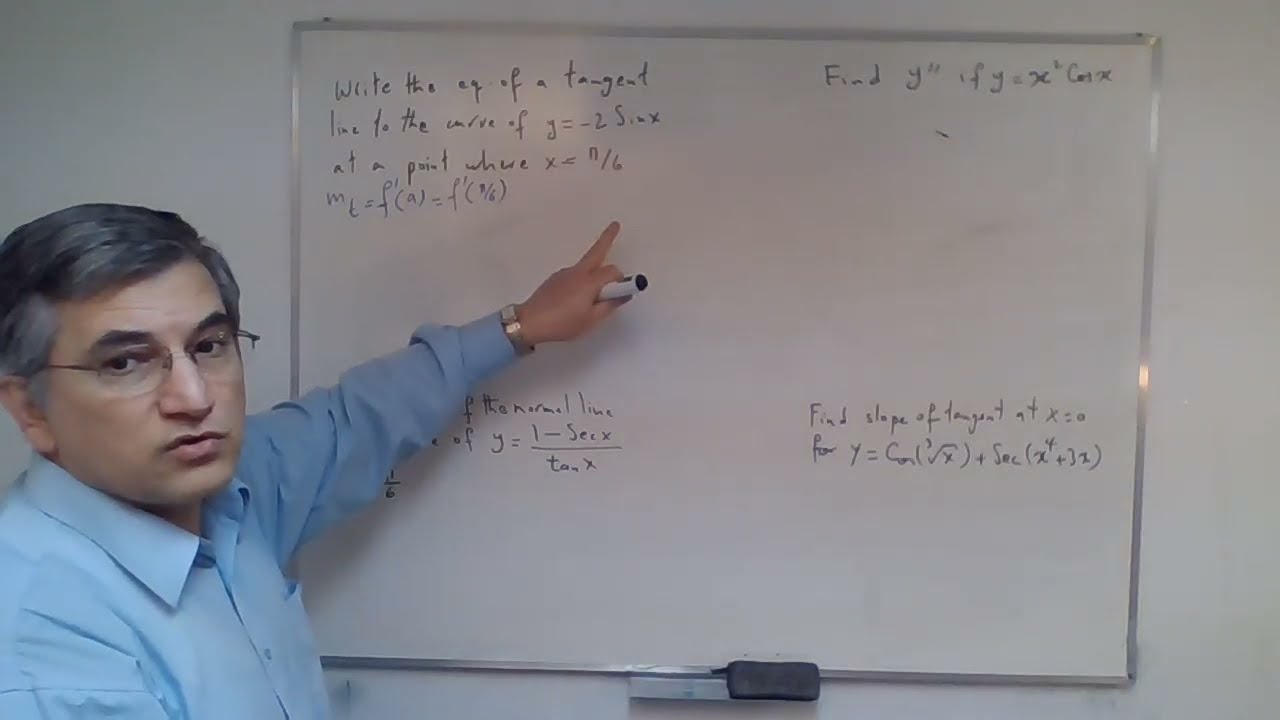 Write the eq. of a tangent
line to the curve of y = -2 Sin x
at a point where x = π/6
m_t = f'(a) = f'(π/6)
Find y'' if y = x² Cos x
f the normal line
of y = (1 - Sec x)/(tan x)
6
Find slope of tangent at x = 0
for y = Cos(³√x) + Sec(x⁴ + 3x)